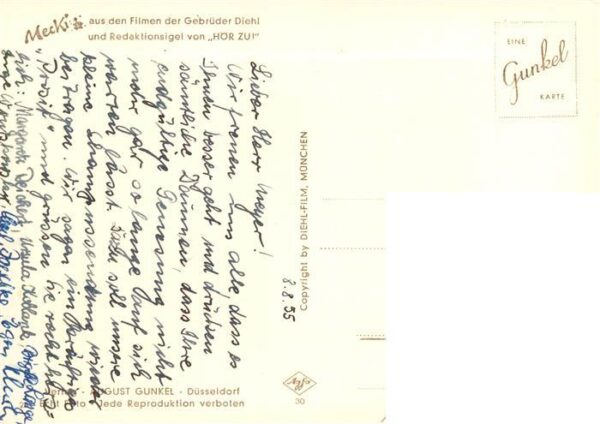 Mecki aus den Filmen der Gebrüder Diehl
und Redaktionsigel von „HÖR ZU!"
EINE
Gunkel
KARTE
8.8.55
Lieber Herr Meyer!
Wir freuen uns alle, dass es
Ihnen besser geht und drücken
sämtliche Daumen, dass Ihre
endgültige Genesung nicht
mehr gar so lange auf sich
warten lässt. Dazu soll unsere
kleine
beitragen. Wir sagen ein kräftiges
"Prosit" und grüssen Sie recht herz-
lich: Margarete Ursula
Copyright by DIEHL-FILM, MÜNCHEN
AUGUST GUNKEL - Düsseldorf
Echt Foto - Jede Reproduktion verboten
Agfa
30